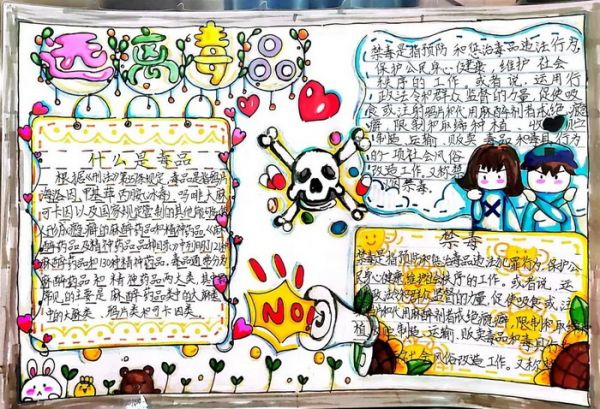 远离毒品
什么是毒品
根据《刑法》第 条规定,毒品是指鸦片
海洛因,甲基苯丙胺(冰毒)、吗啡大麻
可卡因以及国家规定管制的其他能够使
人 瘾癖的麻醉药品和精神药品《麻
醉药品及精神药品品种目录》中列明了121种
麻醉药品和130种精神药品。毒品通常分为
麻醉药品和精神药品两大类。其
常见的主要是麻醉药品类中的大麻类
中的大麻类、鸦片类和可卡因类。
禁毒是指预防和惩治毒品违法行为,
保护公民身心健康,维护社会
秩序的工作,或者说,运用行
政法令和群众监督的力量,促使吸
食或注射鸦片和代用麻醉剂者戒绝瘾
癖,限制和取缔种植、
制造、运输、贩卖毒品和 行为
的一项社会风俗
改造工作。又称禁
烟禁毒。
NO!
禁毒
禁毒是指预防和惩治毒品违法犯罪行为,保护公
民身心健康,维护社会秩序的工作。或者说,运
政法令和群众监督的力量,促使吸食或注
鸦片和代用麻醉剂者戒绝瘾癖,限制和取缔
植 制造、运输、贩卖毒品和 行
社会风俗改造工作。又称禁